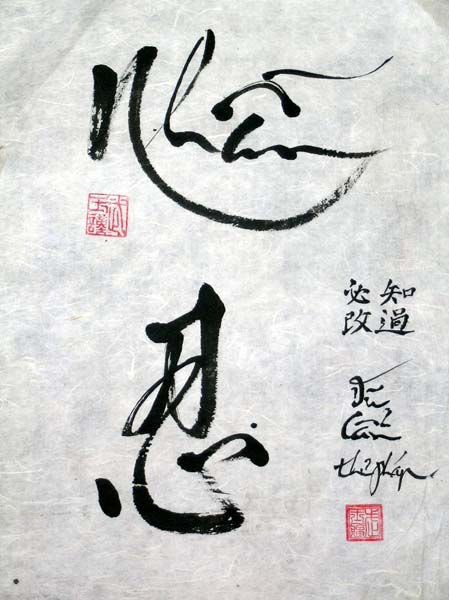 Nhẫn
忍
知過
必改
thư pháp